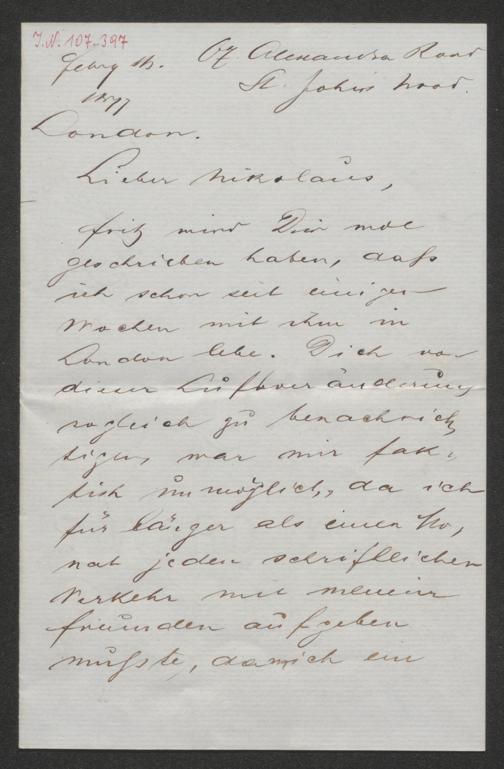 I.N. 107.397
Alexandra Road
St. John's Wood.
London.
Lieber Nikolaus,
Fritz wird Dir wol
geschrieben haben, daß
ich schon seit einigen
Wochen mit ihm in
London lebe. Dich von
dieser Luftveränderung
sogleich zu benachrich,
tigen, war mir fak,
tish unmöglich, da ich
für länger als einen Mo,
nat jeden schriftlichen
Verkehr mit meinen
Freunden aufgeben
mußste, da ich ein